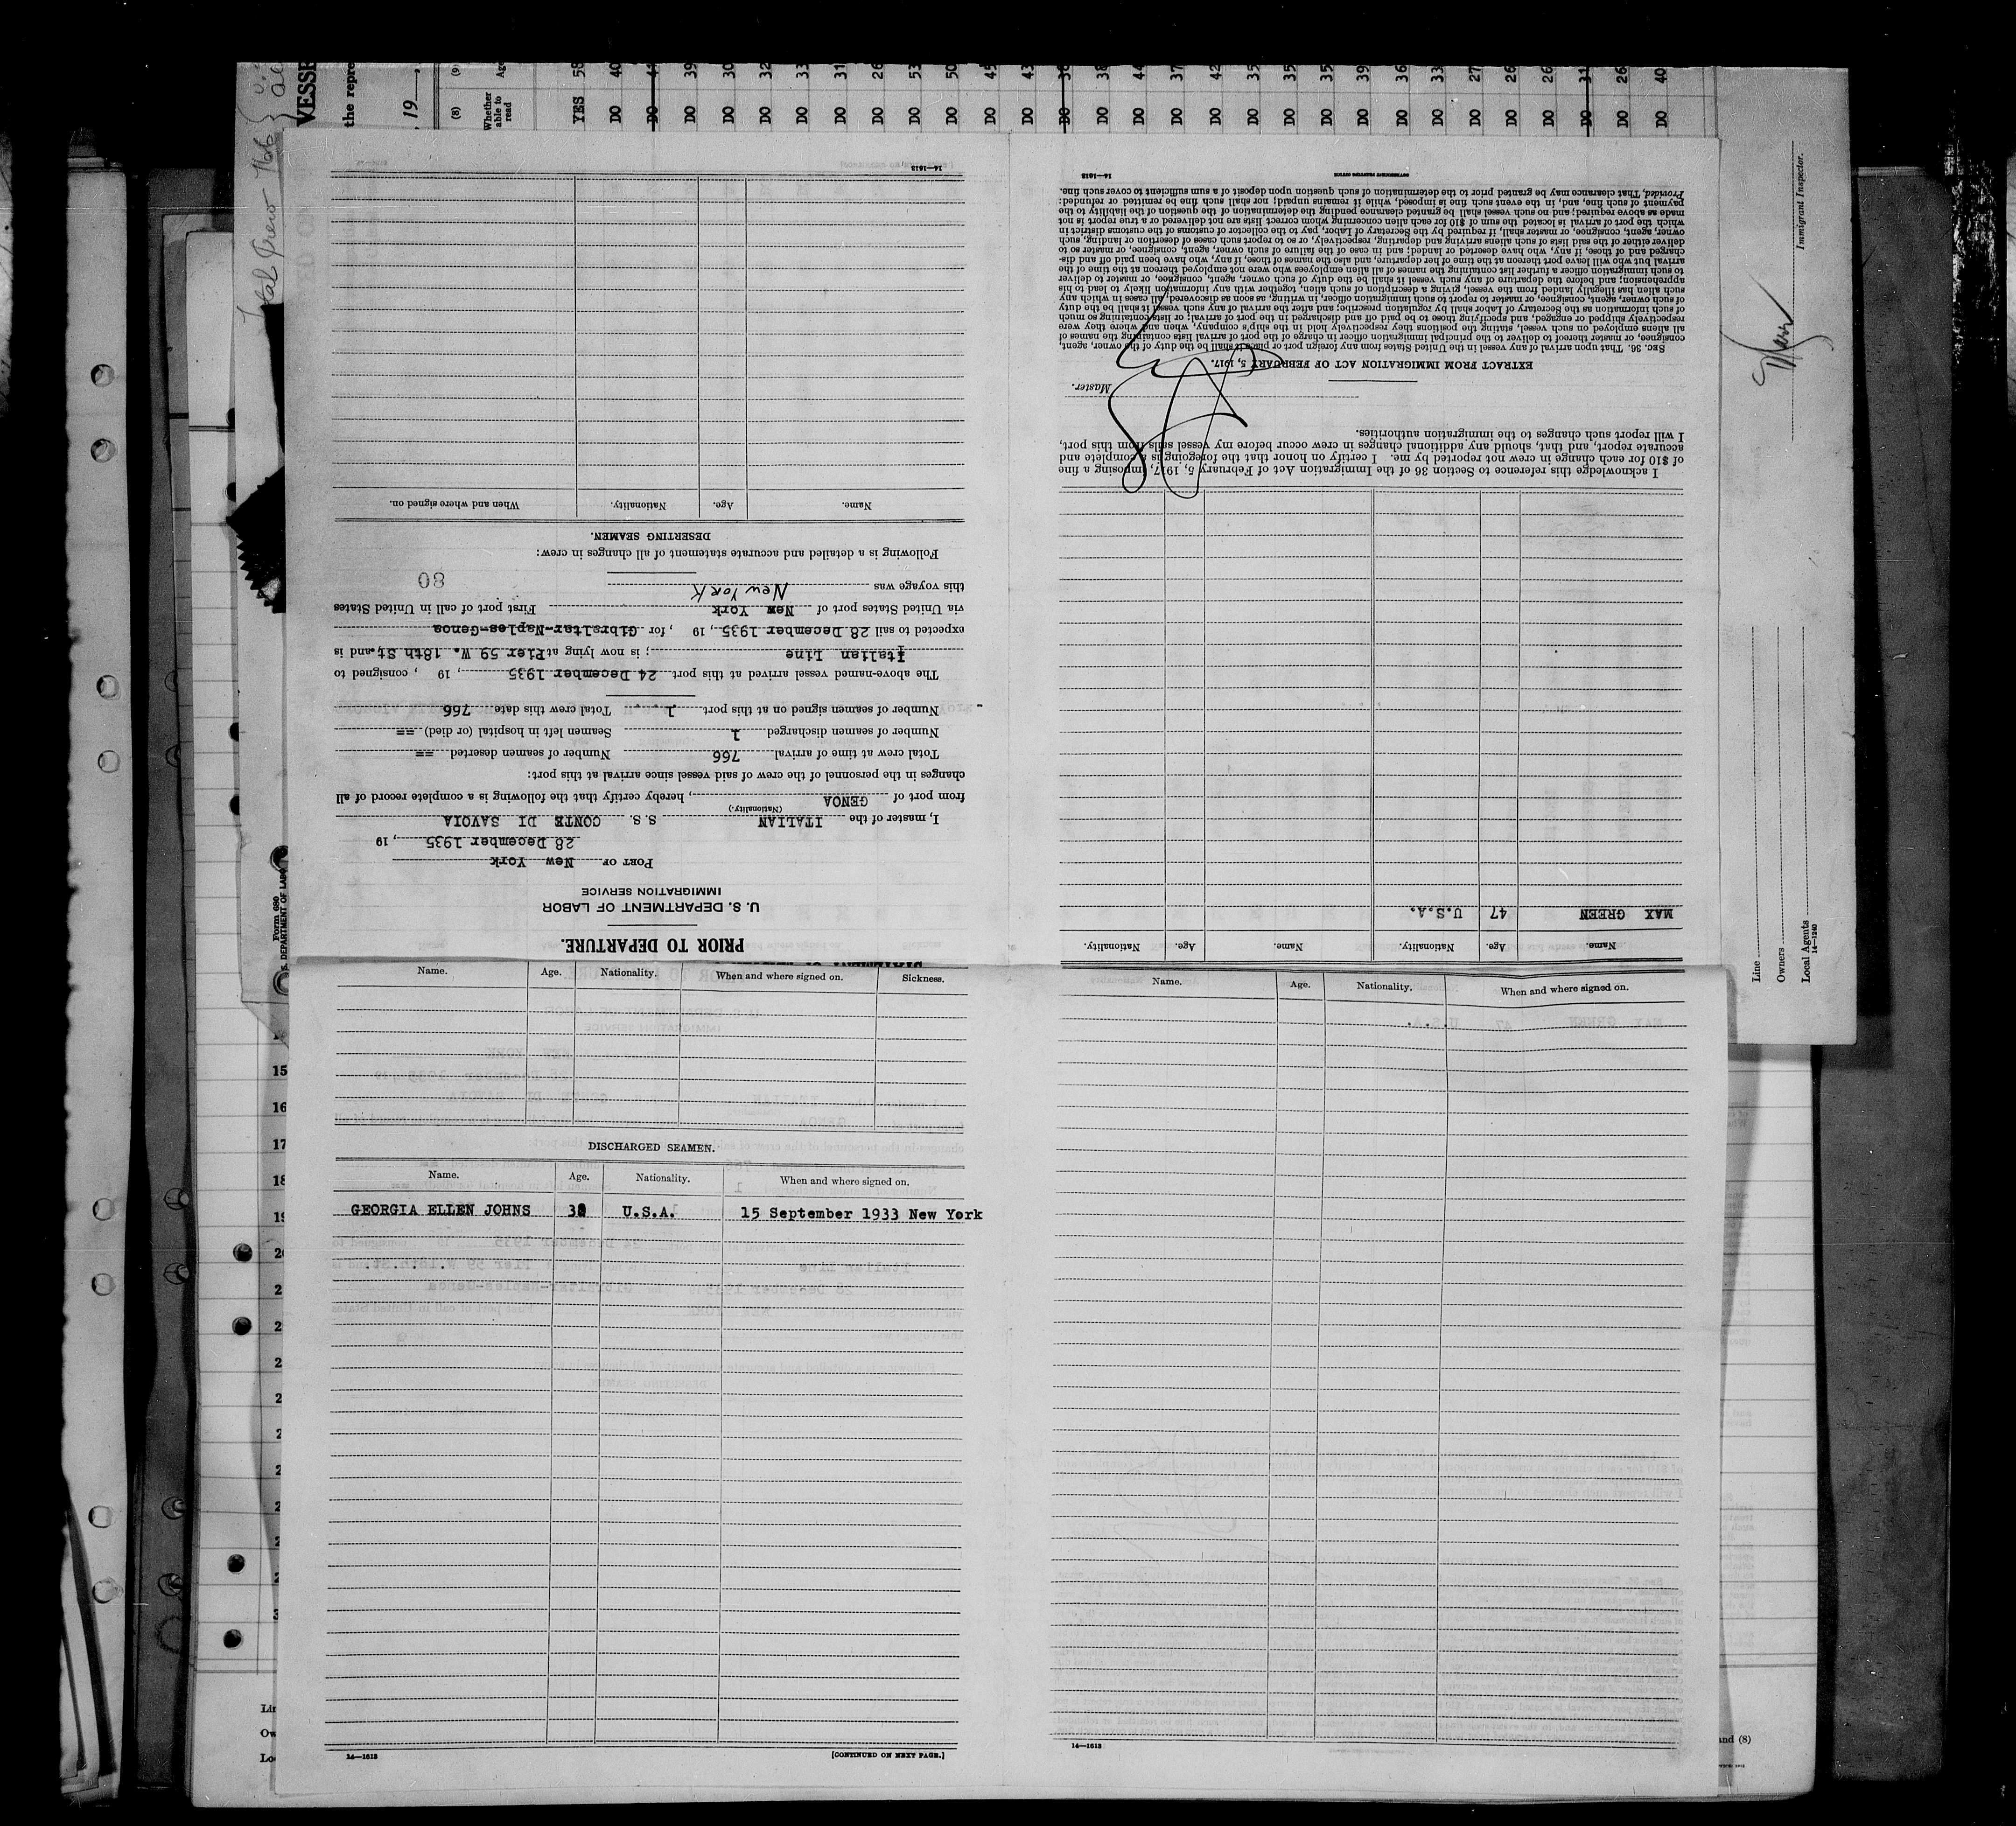 PRIOR TO DEPARTURE.
U. S. DEPARTMENT OF LABOR
IMMIGRATION SERVICE
PORT OF New York
28 December 1935, 19
I, master of the ITALIAN S. S. CONTE DI SAVOIA
(Nationality.)
from port of GENOA, hereby certify that the following is a complete record of all
changes in the personnel of the crew of said vessel since arrival at this port:
Total crew at time of arrival 766 Number of seamen deserted ==
Number of seamen discharged 1 Seamen left in hospital (or died) ==
Number of seamen signed on at this port 1 Total crew this date 766
The above-named vessel arrived at this port 24 December 1935, 19 , consigned to
Italian Line; is now lying at Pier 59 W. 18th St. and is
expected to sail 28 December 1935, 19 , for Gibraltar-Naples-Genoa
via United States port of New York First port of call in United States
this voyage was New York
80
Following is a detailed and accurate statement of all changes in crew:
DESERTING SEAMEN.
Name. Age. Nationality. When and where signed on.
14—1613
Name. Age. Nationality. Name. Age. Nationality.
MAX GREEN 47 U.S.A.
I acknowledge this reference to Section 36 of the Immigration Act of February 5, 1917, imposing a fine
of $10 for each change in crew not reported by me. I certify on honor that the foregoing is a complete and
accurate report, and that, should any additional changes in crew occur before my vessel sails from this port,
I will report such changes to the immigration authorities.
Master.
EXTRACT FROM IMMIGRATION ACT OF FEBRUARY 5, 1917.
SEC. 36. That upon arrival of any vessel in the United States from any foreign port or place it shall be the duty of the owner, agent,
consignee, or master thereof to deliver to the principal immigration officer in charge of the port of arrival lists containing the names of
all aliens employed on such vessel, stating the positions they respectively hold in the ship's company, when and where they were
respectively shipped or engaged, and specifying those to be paid off and discharged in the port of arrival; or lists containing so much
of such information as the Secretary of Labor shall by regulation prescribe; and after the arrival of any such vessel it shall be the duty
of such owner, agent, consignee, or master to report to such immigration officer, in writing, as soon as discovered, all cases in which any
such alien has illegally landed from the vessel, giving a description of such alien, together with any information likely to lead to his
apprehension; and before the departure of any such vessel it shall be the duty of such owner, agent, consignee, or master to deliver
to such immigration officer a further list containing the names of all alien employees who were not employed thereon at the time of the
arrival but who will leave port thereon at the time of her departure, and also the names of those, if any, who have been paid off and dis-
charged and of those, if any, who have deserted or landed; and in case of the failure of such owner, agent, consignee, or master so to
deliver either of the said lists of such aliens arriving and departing, respectively, or so to report such cases of desertion or landing, such
owner, agent, consignee, or master shall, if required by the Secretary of Labor, pay to the collector of customs of the customs district in
which the port of arrival is located the sum of $10 for each alien concerning whom correct lists are not delivered or a true report is not
made as above required; and no such vessel shall be granted clearance pending the determination of the question of the liability to the
payment of such fine, and, in the event such fine is imposed, while it remains unpaid; nor shall such fine be remitted or refunded:
Provided, That clearance may be granted prior to the determination of such question upon deposit of a sum sufficient to cover such fine.
14—1613
Name. Age. Nationality. When and where signed on. Sickness.
DISCHARGED SEAMEN.
Name. Age. Nationality. When and where signed on.
GEORGIA ELLEN JOHNS U.S.A. 15 September 1933 New York
14—1613 [CONTINUED ON NEXT PAGE.]
Name. Age. Nationality. When and where signed on.
14—1613
Total Crew 766
VESSE
the repre
, 19
(8) (9)
Whether able to read
YES 58
DO 40
DO 41
DO 39
DO 30
DO 32
DO 33
DO 31
DO 26
DO 53
DO 50
DO 45
DO 43
DO 36
DO 38
DO 44
DO 37
DO 42
DO 35
DO 35
DO 35
DO 39
DO 36
DO 33
DO 27
DO 26
DO 26
DO 31
DO 26
DO 40
Immigrant Inspector.
Line
Owners
Local Agents
14—1240
Form 680
S. DEPARTMENT OF LABO
15
16
17
18
19
and (8)